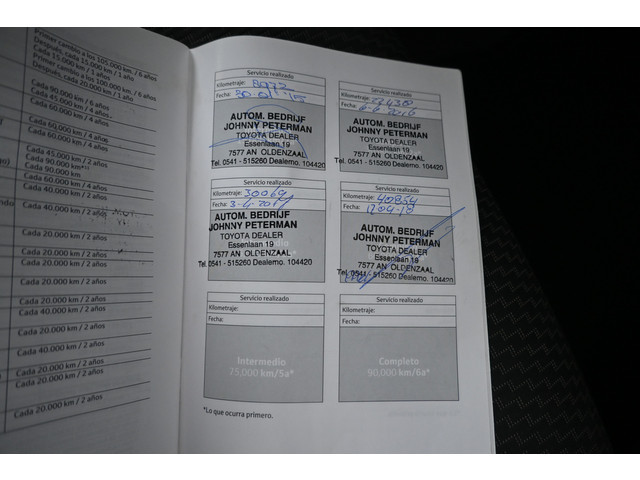 Primer cambio a los 105.000 km. / 6 años
Después, cada 15.000 km / 1 año
Cada 15.000 km / 1 año
Primer cambio a los 100.000 km. / 6 años
Después, cada 20.000 km / 1 año
Cada 90.000 km / 6 años
Cada 45.000 km / 4 años
Cada 60.000 km / 4 años
Cada 60.000 km / 4 años
Cada 60.000 km / 4 años
Cada 45.000 km / 2 años
Cada 90.000 km
Cada 90.000 km
Cada 60.000 km / 4 años
Cada 40.000 km / 2 años
Cada 40.000 km / 2 años
Cada 20.000 km / 2 años
Cada 20.000 km / 2 años
Cada 20.000 km / 2 años
Cada 20.000 km / 2 años
Cada 40.000 km / 2 años
Cada 20.000 km / 2 años
Cada 40.000 km / 2 años
Cada 20.000 km / 2 años
Cada 20.000 km / 2 años
Cada 20.000 km / 2 años
Servicio realizado
Kilometraje: 8972
Fecha:
AUTOM. BEDRIJF
JOHNNY PETERMAN
TOYOTA DEALER
Essenlaan 19
7577 AN OLDENZAAL
Tel. 0541 - 515260 Dealerno. 104420
Servicio realizado
Kilometraje:
Fecha:
AUTOM. BEDRIJF
JOHNNY PETERMAN
TOYOTA DEALER
Essenlaan 19
7577 AN OLDENZAAL
Tel. 0541 - 515260 Dealerno. 104420
Servicio realizado
Kilometraje: 30069
Fecha: 3-4-2017
AUTOM. BEDRIJF
JOHNNY PETERMAN
TOYOTA DEALER
Essenlaan 19
7577 AN OLDENZAAL
Tel. 0541 - 515260 Dealerno. 104420
Servicio realizado
Kilometraje: 40854
Fecha:
AUTOM. BEDRIJF
JOHNNY PETERMAN
TOYOTA DEALER
Essenlaan 19
7577 AN OLDENZAAL
Tel. 0541 - 515260 Dealerno. 104420
Servicio realizado
Kilometraje:
Fecha:
Intermedio
75,000 km/5a*
Servicio realizado
Kilometraje:
Fecha:
Completo
90,000 km/6a*
*Lo que ocurra primero.